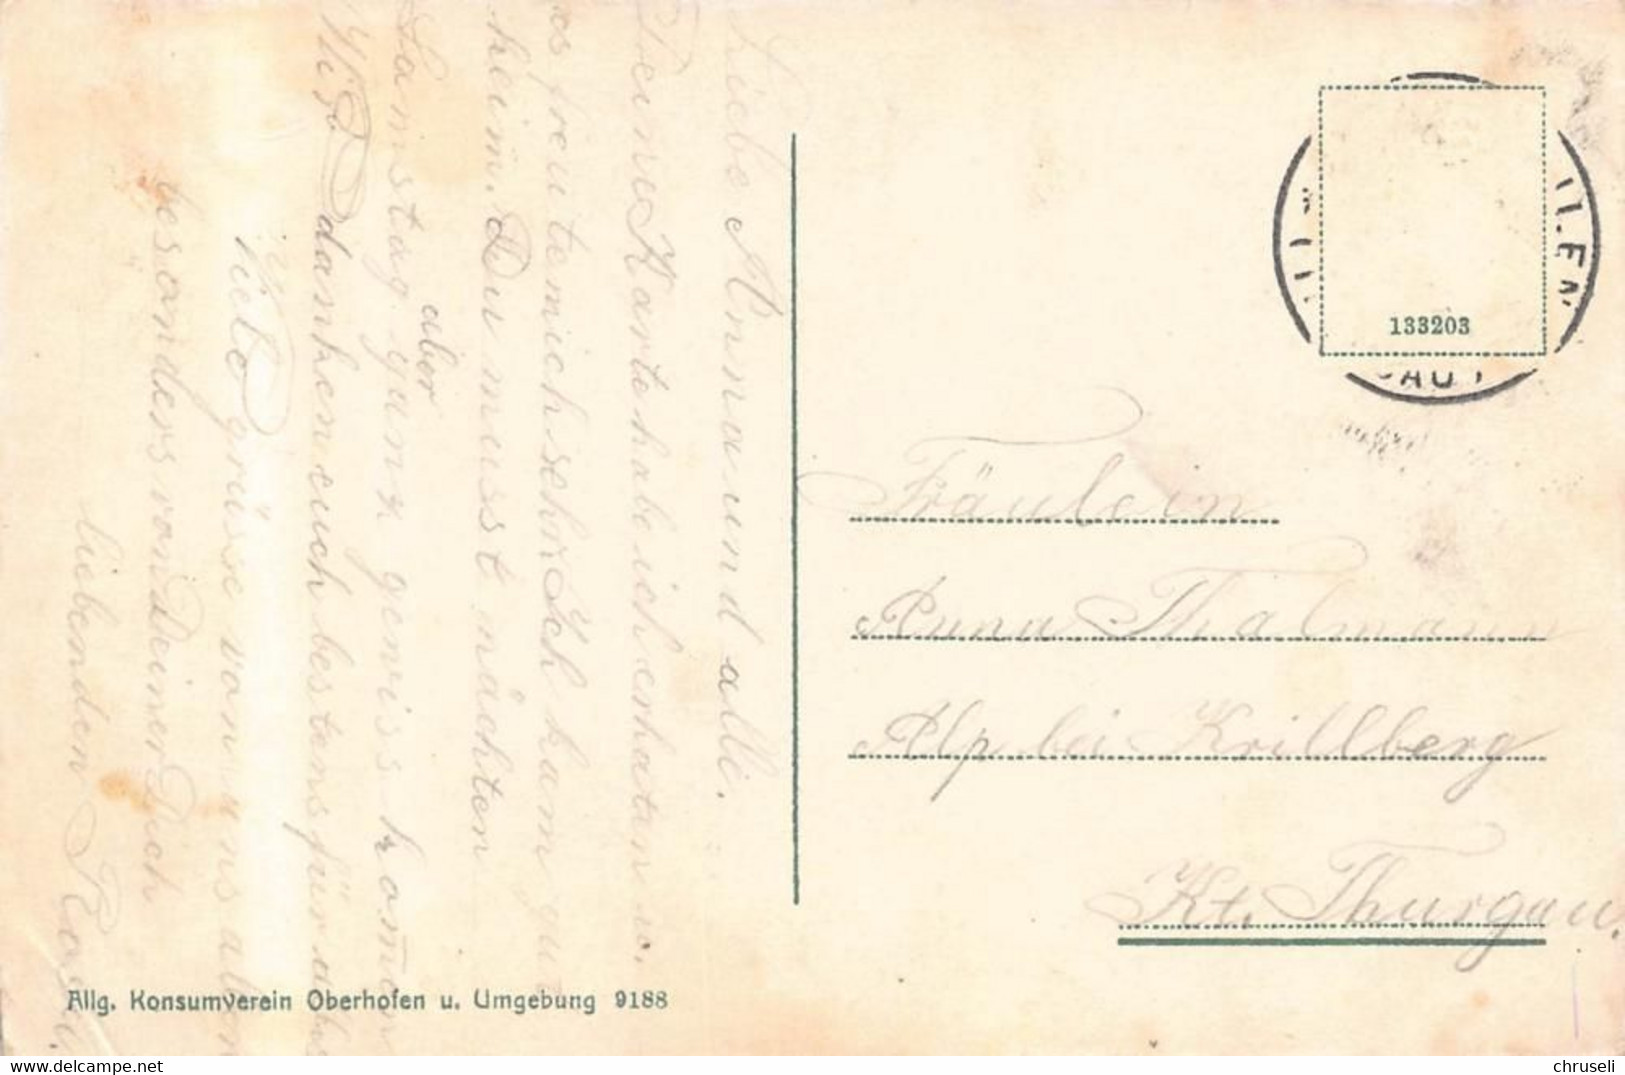 Liebe Anna und alle.
Deine Karte habe ich erhalten u.
es freute mich sehr. Ich kam gut
heim. Du musst nächten
Samstag ganz gewiss komen
aber
danken euch bestens für
Viele grüsse von uns allen
besonders von Deiner Dich
liebenden Rosa
133203
Fräulein
Anna Thalmann
Alp bei Krillberg
Kt. Thurgau.
Allg. Konsumverein Oberhofen u. Umgebung 9188
delcampe.net
chruseli